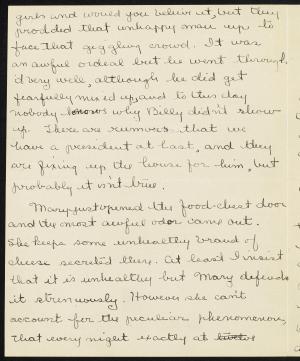 girls and would you believe it, but they
prodded that unhappy man up to
face that giggling crowd. It was
an awful ordeal but he went through
it very well, although he did get
fearfully mixed up, and to this day
nobody knows why Billy didn't show
up. There are rumors that we
have a president at last, and they
are fixing up the house for him, but
probably it isn't true.
Mary just opened the food-chest door
and the most awful odor came out.
She keeps some unhealthy brand of
cheese secreted there. At least I insist
that it is unhealthy but Mary defends
it strenuously. However she can't
account for the peculiar phenomenon,
that every night exactly at twelve